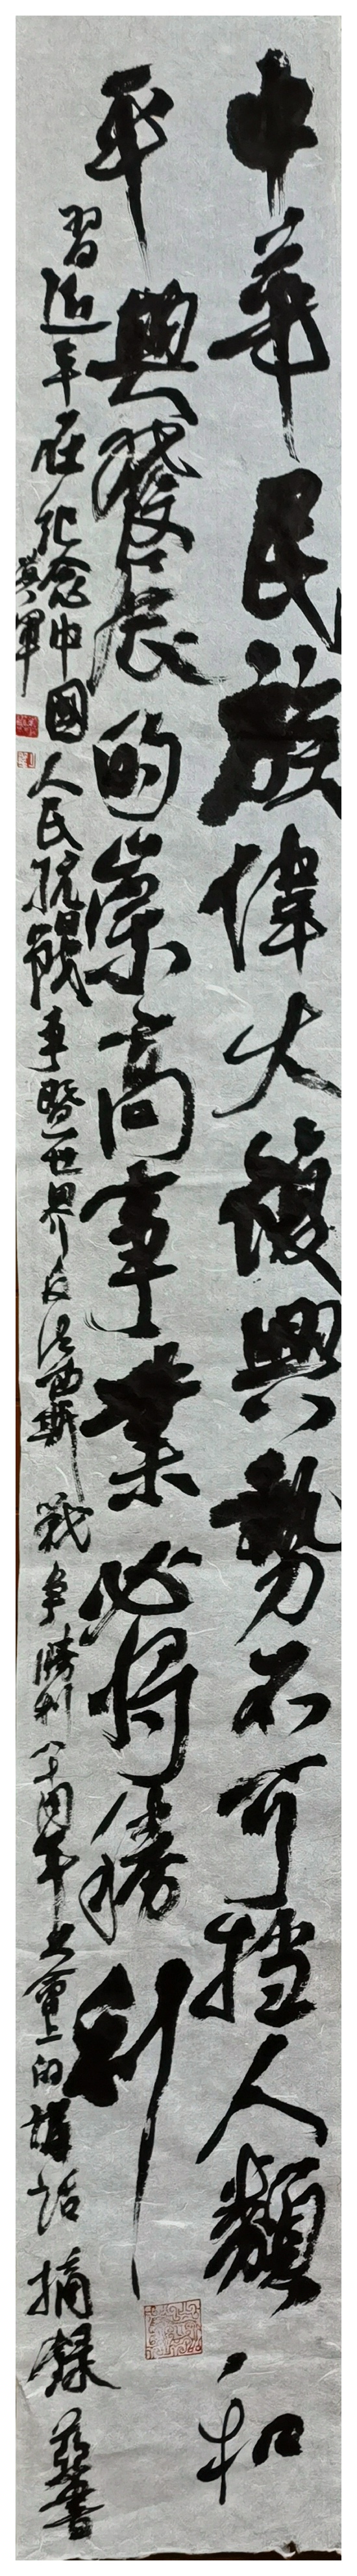 中華民族偉大復興勢不可挡人類和
平與發展的崇高事業必將勝利
習近平在紀念中國人民抗日戰争暨世界反法西斯戰争勝利八十周年大會上的講話摘録書
軍